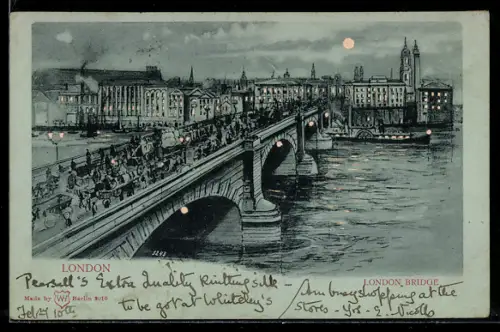 LONDON
LONDON BRIDGE
Made by W H Berlin 9219
Pearsall's Extra Quality Knitting silk –
to be got at Whiteley's
Feb 10th
Am busy shopping at the
Stores – Yrs – E. Nicolls